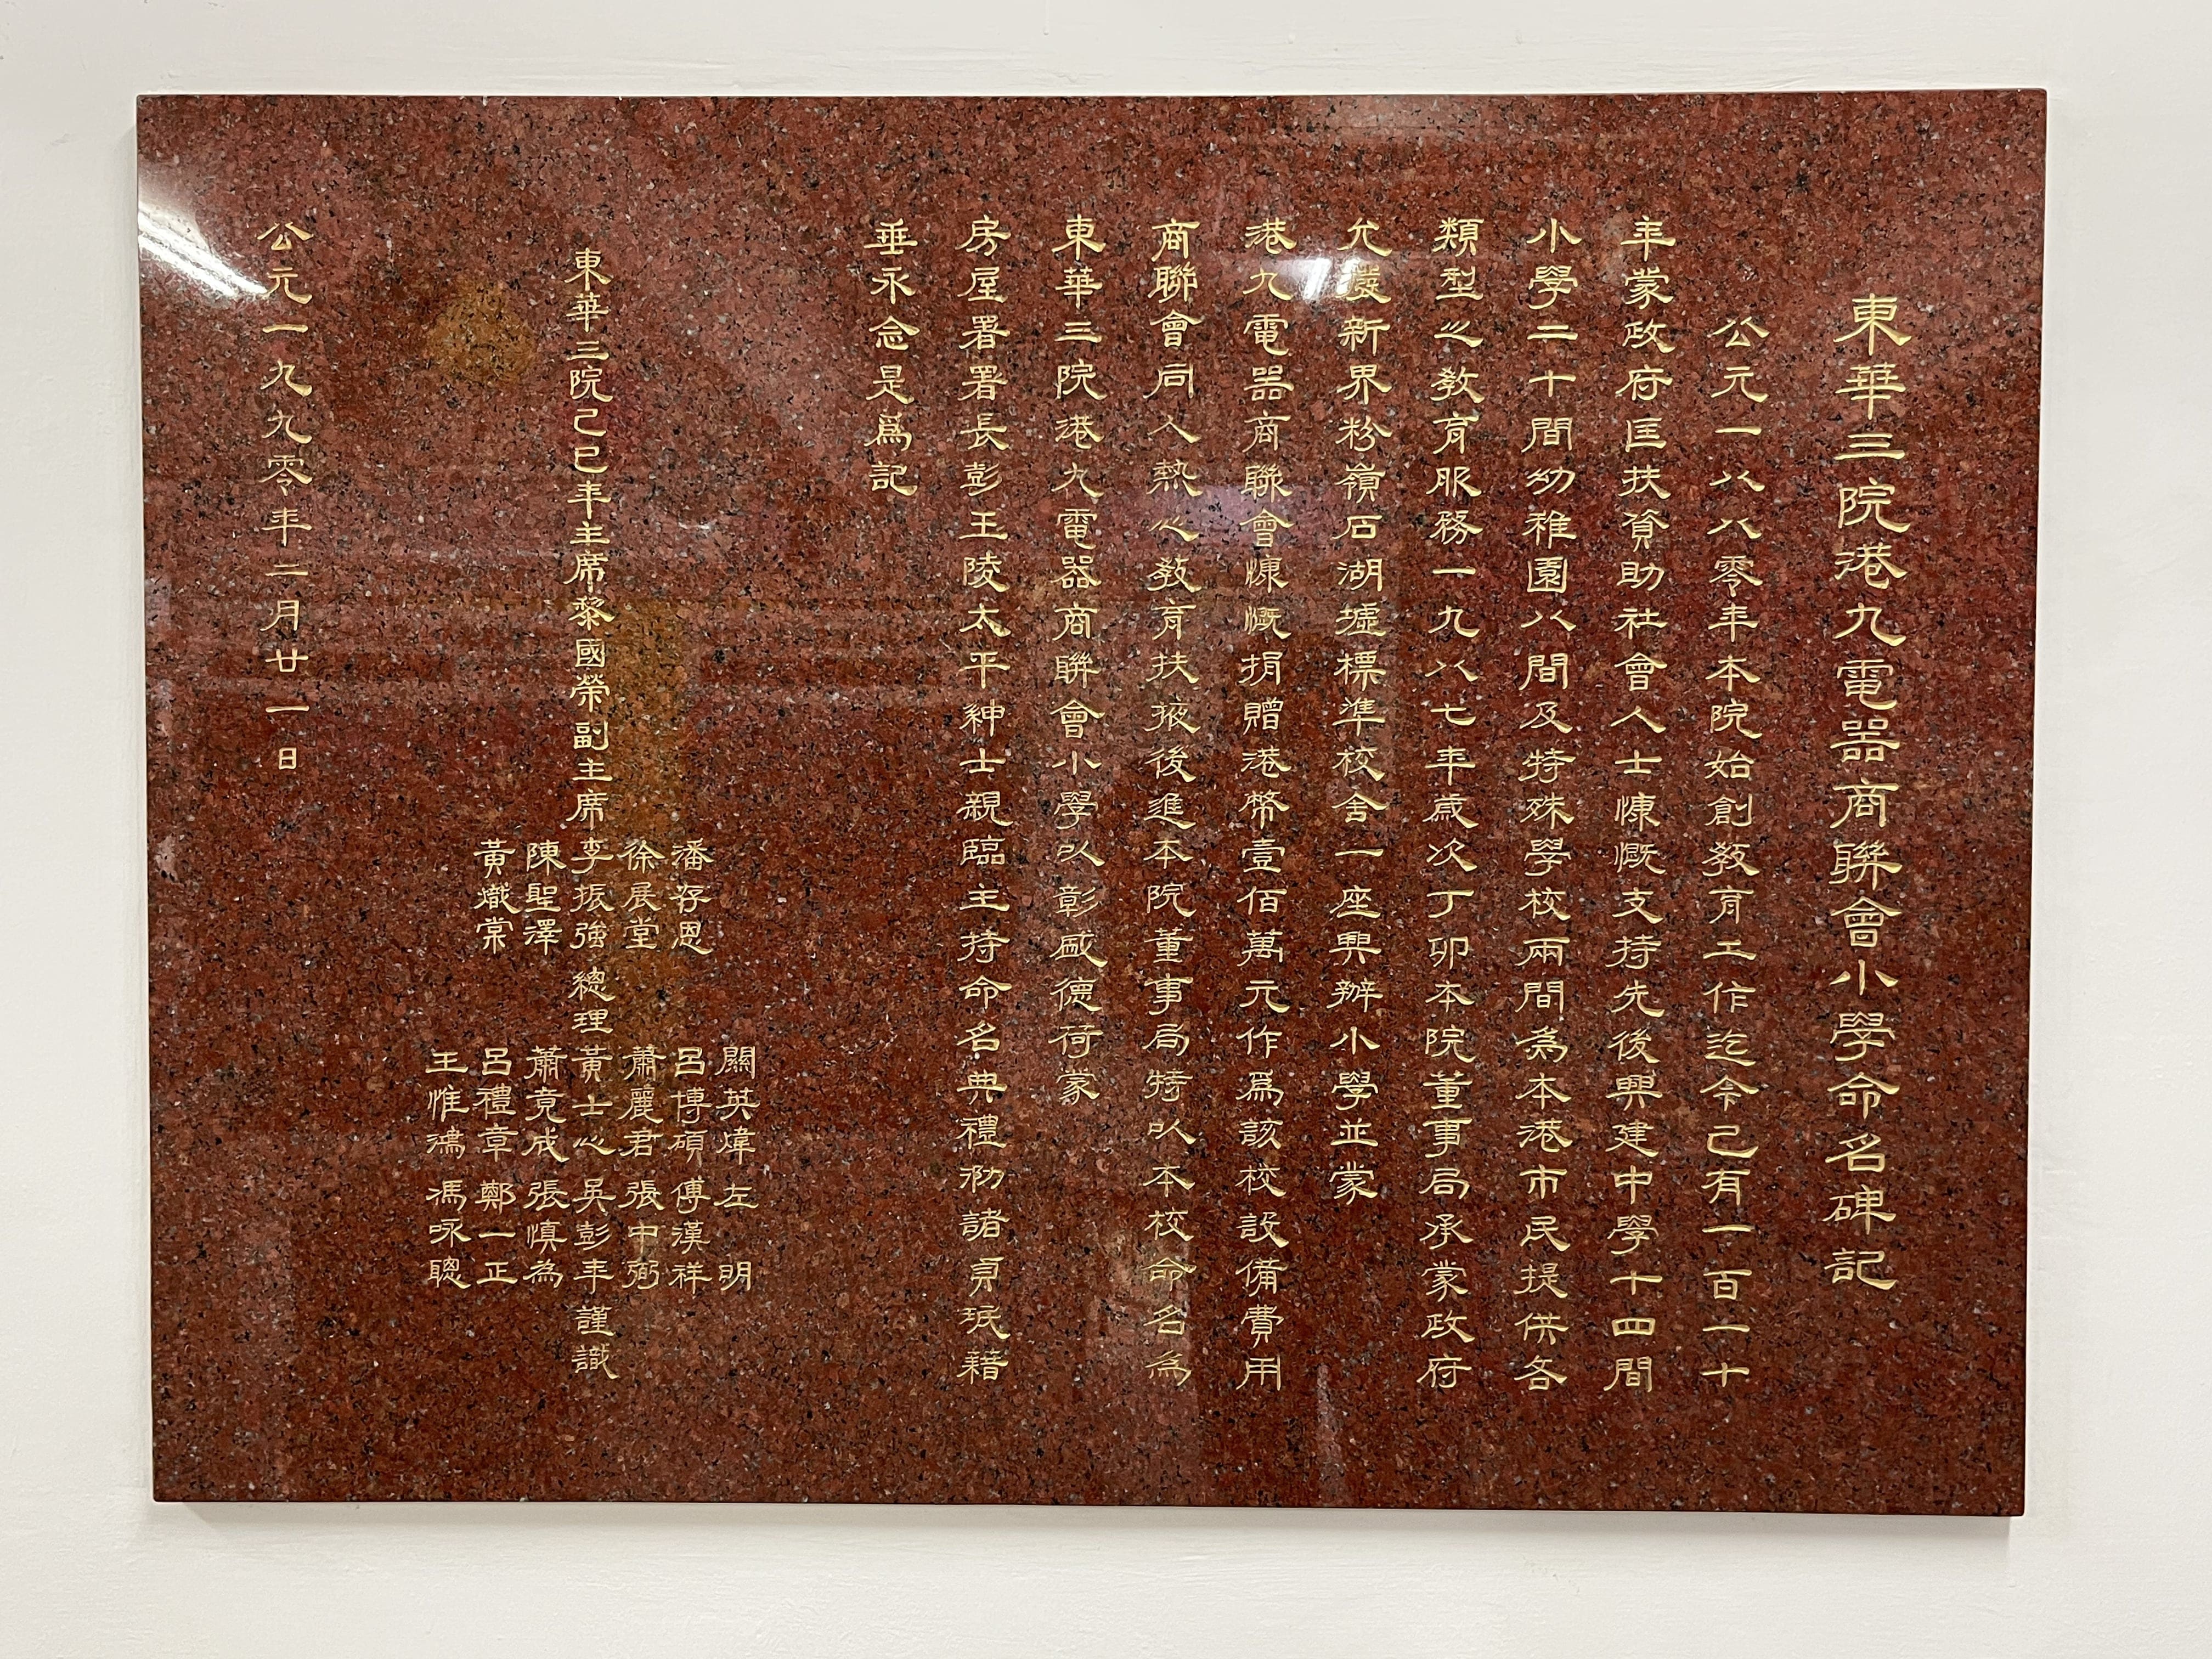 東華三院港九電器商聯會小學命名碑記
公元一八八零年本院始創教育工作迄今已有一百一十
年蒙政府匡扶資助社會人士慷慨支持先後興建中學十四間
小學二十間幼稚園八間及特殊學校兩間為本港市民提供各
類型之教育服務一九八七年歲次丁卯本院董事局承蒙政府
允撥新界粉嶺石湖墟標準校舍一座興辦小學並蒙
港九電器商聯會慷慨捐贈港幣壹佰萬元作爲該校設備費用
商聯會同人熱心教育扶掖後進本院董事局特以本校命名為
東華三院港九電器商聯會小學以彰盛德荷蒙
房屋署署長彭玉陵太平紳士親臨主持命名典禮泐諸貞珉藉
垂永念是爲記
東華三院己巳年主席黎國榮副主席李振強總理黃士心吳彭年謹識
潘存恩
徐展堂
陳聖澤
黃熾棠
關英煒左明
呂博碩傅漢祥
蕭麗君張中弼
蕭竟成張慎為
呂禮章鄭一正
王惟鴻馮咏聰
公元一九九零年二月廿一日